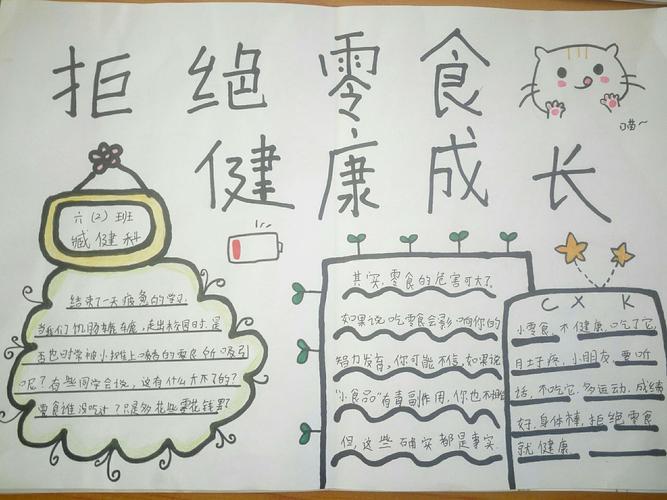 拒绝零食
健康成长
喵~
六(2)班
臧健科
结束了一天疲惫的学习.
当我们饥肠辘辘,走出校园时.是
否也时常被小摊上喷香的零食所吸引
呢?有些同学会说,这有什么大不了的?
零食谁没吃过?只是多花些零花钱罢
其实,零食的危害可大了.
如果说吃零食会影响你的
智力发育,你可能不信,如果说
"小食品"有毒副作用,你也不相信
但,这些确实都是事实.
C X K
小零食不健康,吃了它,
肚子疼,小朋友要听
话,不吃它.多运动.成绩
好,身体棒,拒绝零食
就健康